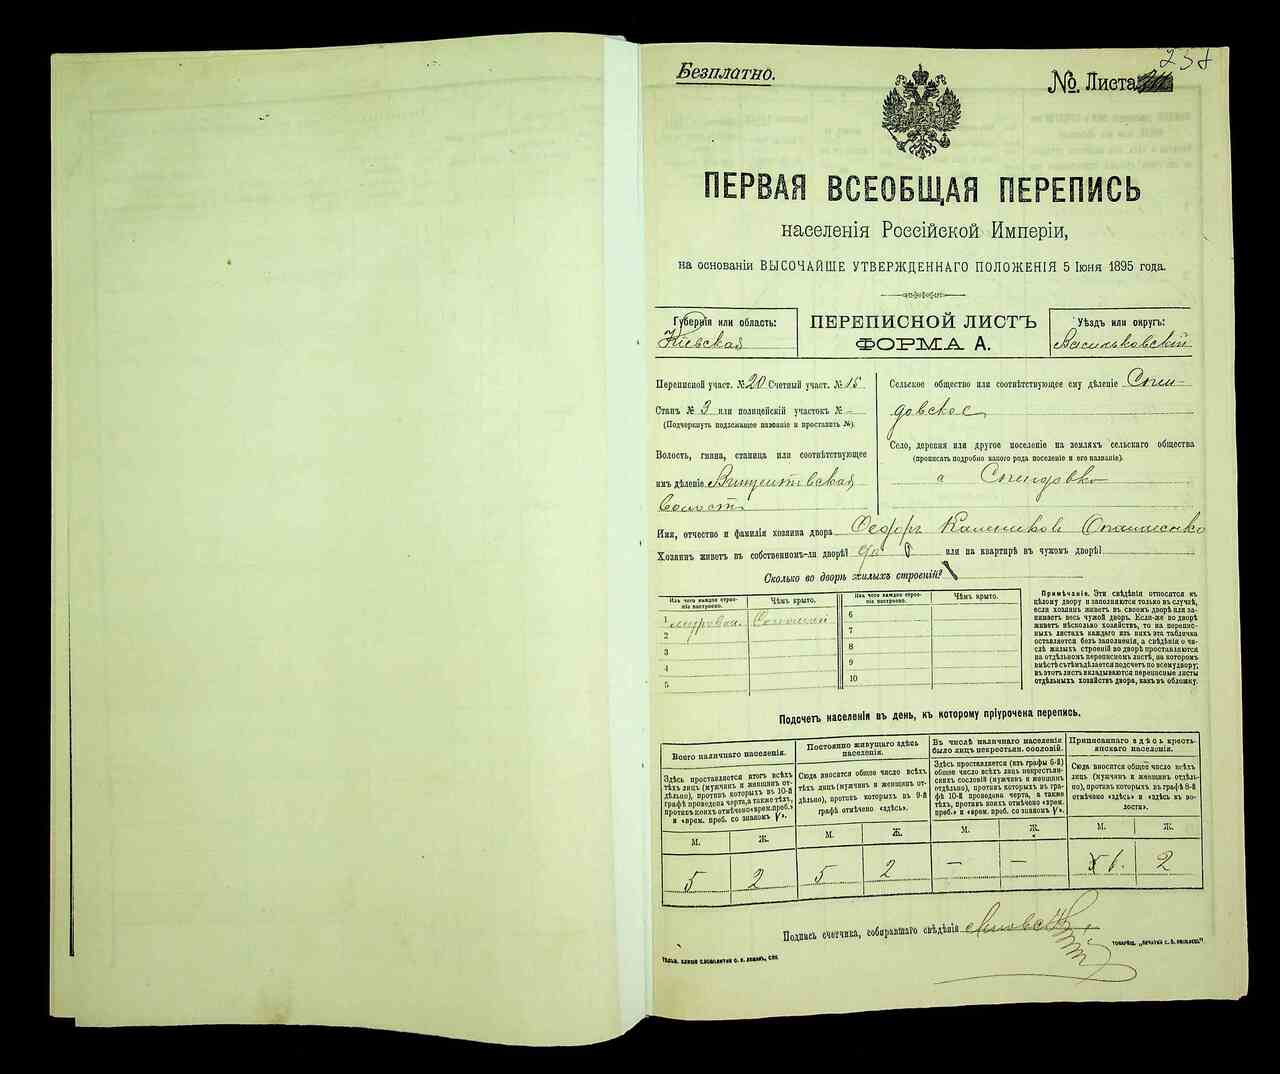 Безплатно.
258
№. Листа
ПЕРВАЯ ВСЕОБЩАЯ ПЕРЕПИСЬ
населенія Россійской Имперіи,
на основаніи ВЫСОЧАЙШЕ УТВЕРЖДЕННАГО ПОЛОЖЕНІЯ 5 Іюня 1895 года.
Губернія или область:
Кіевская
ПЕРЕПИСНОЙ ЛИСТЪ
ФОРМА А.
Уѣздъ или округъ:
Васильковскій
Переписной участ. № 20 Счетный участ. № 15
Станъ № 3 или полицейскій участокъ № -
(Подчеркнуть подлежащее названіе и проставить №).
Волость, гмина, станица или соотвѣтствующее
имъ дѣленіе Винцентовская
волость
Сельское общество или соотвѣтствующее ему дѣленіе
довское
Село, деревня или другое поселеніе на земляхъ сельскаго общества
(прописать подробно какого рода поселеніе и его названіе).
Имя, отчество и фамилія хозяина двора Ѳедоръ
Хозяинъ живетъ въ собственномъ-ли дворѣ? да или на квартирѣ въ чужомъ дворѣ?
Сколько во дворѣ жилыхъ строеній? 1
Изъ чего каждое строеніе построено.
Чѣмъ крыто.
Изъ чего каждое строеніе построено.
Чѣмъ крыто.
1 Соломой
2
3
4
5
6
7
8
9
10
Примѣчаніе. Эти свѣдѣнія относятся къ
цѣлому двору и заполняются только въ случаѣ,
если хозяинъ живетъ въ своемъ дворѣ или занимаетъ
весь чужой дворъ. Если-же во дворѣ
живетъ нѣсколько хозяйствъ, то на переписныхъ
листахъ каждаго изъ нихъ эта табличка
оставляется безъ заполненія, а свѣдѣнія о числѣ
жилыхъ строеній во дворѣ проставляются
на отдѣльномъ переписномъ листѣ, на которомъ
вмѣстѣ съ тѣмъ дѣлается подсчетъ по всему двору;
въ этотъ листъ вкладываются переписные листы
отдѣльныхъ хозяйствъ двора, какъ въ обложку.
Подсчетъ населенія въ день, къ которому пріурочена перепись.
Всего наличнаго населенія.
Здѣсь проставляется итогъ всѣхъ
тѣхъ лицъ (мужчинъ и женщинъ отдѣльно),
противъ которыхъ въ 10-й
графѣ проведена черта, а также тѣхъ,
противъ коихъ отмѣчено «врем. преб.»
и «врем. преб. со знакомъ V».
Постоянно живущаго здѣсь
населенія.
Сюда вносится общее число всѣхъ
тѣхъ лицъ (мужчинъ и женщинъ отдѣльно),
противъ которыхъ въ 9-й
графѣ отмѣчено «здѣсь».
Въ числѣ наличнаго населенія
было лицъ некрестьян. сословій.
Здѣсь проставляется (изъ графы 6-й)
общее число всѣхъ лицъ некрестьянскихъ
сословій (мужчинъ и женщинъ
отдѣльно), противъ которыхъ въ графѣ
10-й проведена черта, а также
тѣхъ, противъ коихъ отмѣчено «врем.
преб.» и «врем. преб. со знакомъ V».
Приписаннаго здѣсь крестьянскаго
населенія.
Сюда вносится общее число всѣхъ
лицъ (мужчинъ и женщинъ отдѣльно),
противъ которыхъ въ графѣ 8-й
отмѣчено «здѣсь» и «здѣсь въ волости».
М. Ж. М. Ж. М. Ж. М. Ж.
5 2 5 2 — — 6. 2
Подпись счетчика, собиравшаго свѣдѣнія